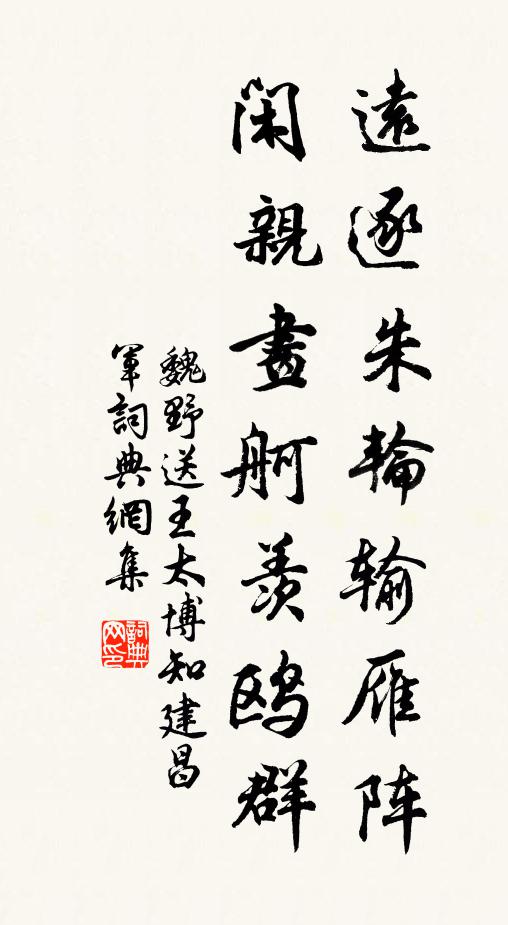 遠逐朱輪输雁阵
閑親畫舸羡鸥群
魏野送王太博知建昌
軍詞典網集
詞典
网印